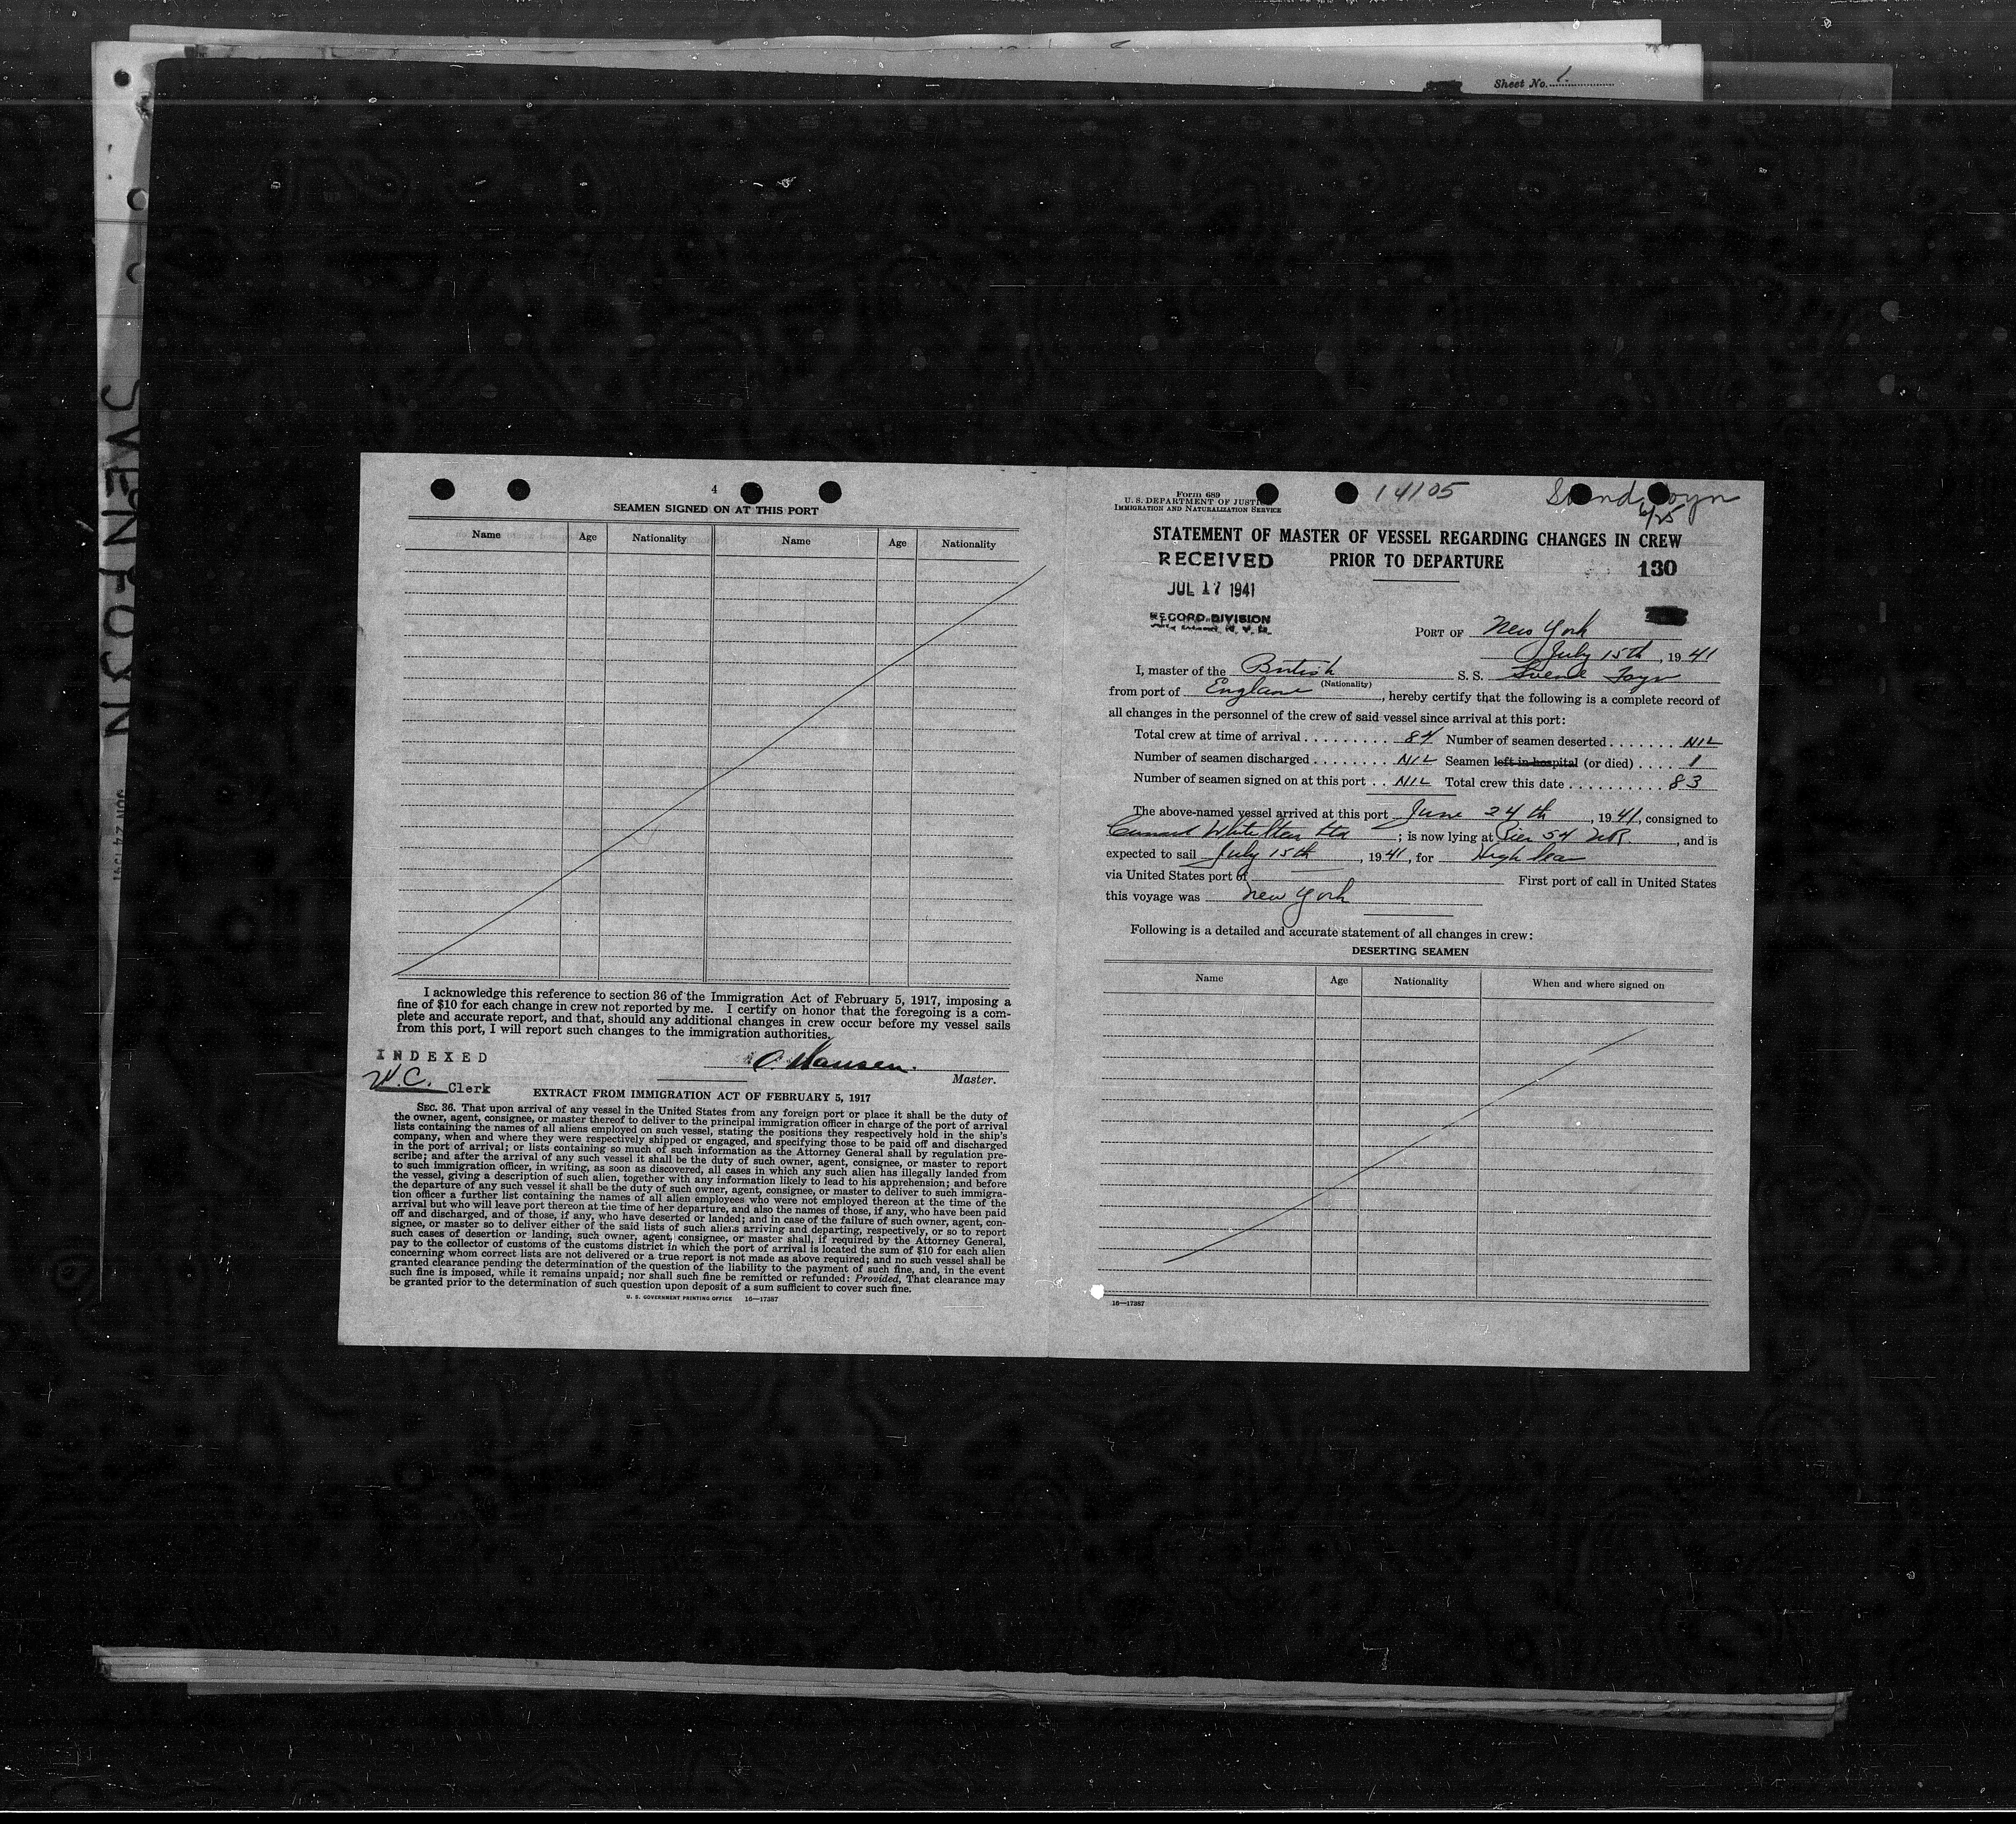 Sheet No. 1.
SVEN FOYN
JUN 24 1941
4
SEAMEN SIGNED ON AT THIS PORT
Name Age Nationality Name Age Nationality
I acknowledge this reference to section 36 of the Immigration Act of February 5, 1917, imposing a
fine of $10 for each change in crew not reported by me. I certify on honor that the foregoing is a com-
plete and accurate report, and that, should any additional changes in crew occur before my vessel sails
from this port, I will report such changes to the immigration authorities.
INDEXED
W.C. Clerk
O. Hansen.
Master.
EXTRACT FROM IMMIGRATION ACT OF FEBRUARY 5, 1917
SEC. 36. That upon arrival of any vessel in the United States from any foreign port or place it shall be the duty of
the owner, agent, consignee, or master thereof to deliver to the principal immigration officer in charge of the port of arrival
lists containing the names of all aliens employed on such vessel, stating the positions they respectively hold in the ship's
company, when and where they were respectively shipped or engaged, and specifying those to be paid off and discharged
in the port of arrival; or lists containing so much of such information as the Attorney General shall by regulation pre-
scribe; and after the arrival of any such vessel it shall be the duty of such owner, agent, consignee, or master to report
to such immigration officer, in writing, as soon as discovered, all cases in which any such alien has illegally landed from
the vessel, giving a description of such alien, together with any information likely to lead to his apprehension; and before
the departure of any such vessel it shall be the duty of such owner, agent, consignee, or master to deliver to such immigra-
tion officer a further list containing the names of all alien employees who were not employed thereon at the time of the
arrival but who will leave port thereon at the time of her departure, and also the names of those, if any, who have been paid
off and discharged, and of those, if any, who have deserted or landed; and in case of the failure of such owner, agent, con-
signee, or master so to deliver either of the said lists of such aliens arriving and departing, respectively, or so to report
such cases of desertion or landing, such owner, agent, consignee, or master shall, if required by the Attorney General,
pay to the collector of customs of the customs district in which the port of arrival is located the sum of $10 for each alien
concerning whom correct lists are not delivered or a true report is not made as above required; and no such vessel shall be
granted clearance pending the determination of the question of the liability to the payment of such fine, and, in the event
such fine is imposed, while it remains unpaid; nor shall such fine be remitted or refunded: Provided, That clearance may
be granted prior to the determination of such question upon deposit of a sum sufficient to cover such fine.
U. S. GOVERNMENT PRINTING OFFICE 16—17387
Form 689
U. S. DEPARTMENT OF JUSTICE
IMMIGRATION AND NATURALIZATION SERVICE
14105
Svend Foyn
6/25
STATEMENT OF MASTER OF VESSEL REGARDING CHANGES IN CREW
PRIOR TO DEPARTURE
RECEIVED
JUL 17 1941
RECORD DIVISION
130
PORT OF New York
July 15th, 19 41
I, master of the British S. S. Svend Foyn
(Nationality)
from port of England, hereby certify that the following is a complete record of
all changes in the personnel of the crew of said vessel since arrival at this port:
Total crew at time of arrival 84 Number of seamen deserted NIL
Number of seamen discharged NIL Seamen left in hospital (or died) 1
Number of seamen signed on at this port NIL Total crew this date 83
The above-named vessel arrived at this port June 24th, 19 41, consigned to
Cunard White Star Ltd; is now lying at Pier 54 NR., and is
expected to sail July 15th, 19 41, for High Sea
via United States port of First port of call in United States
this voyage was New York
Following is a detailed and accurate statement of all changes in crew:
DESERTING SEAMEN
Name Age Nationality When and where signed on
16—17387